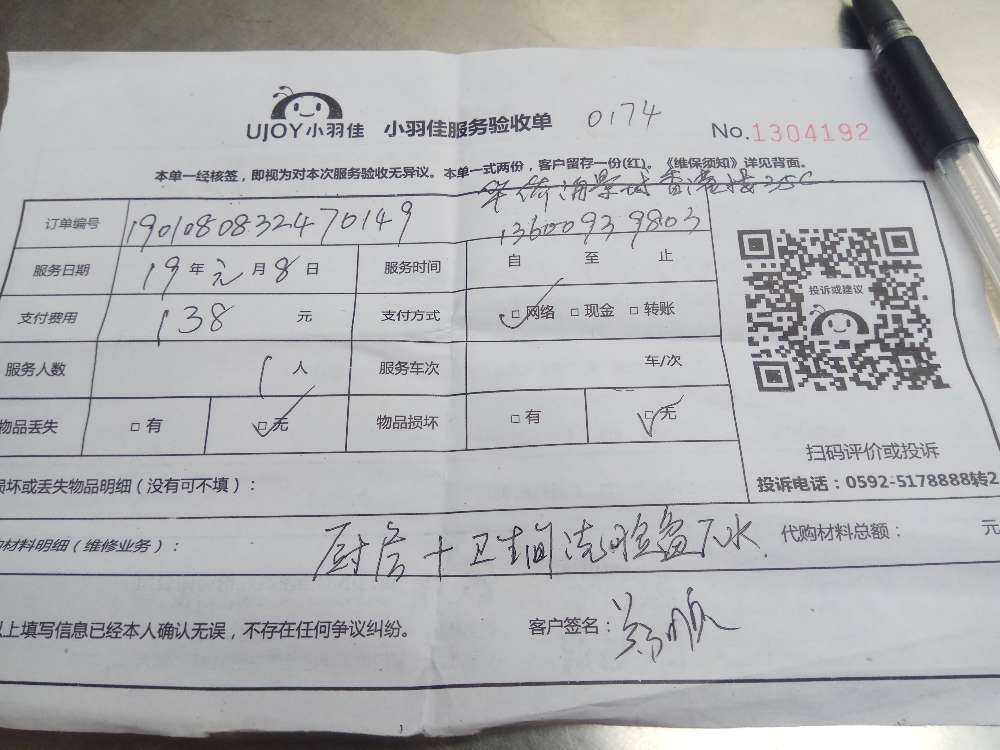 UJOY小羽佳 小羽佳服务验收单 0174 No.1304192
本单一经核签，即视为对本次服务验收无异议。本单一式两份，客户留存一份(红)。《维保须知》详见背面。
订单编号 190108083247 0149 13600939803
服务日期 19年元月8日 服务时间 自 至 止
支付费用 138 元 支付方式 □网络 □现金 □转账
服务人数 1人 服务车次 车/次
物品丢失 □有 □无 物品损坏 □有 □无
投诉或建议
扫码评价或投诉
投诉电话：0592-5178888转2
损坏或丢失物品明细（没有可不填）：
材料明细（维修业务）： 厨房+卫生间洗脸盆下水 代购材料总额： 元
以上填写信息已经本人确认无误，不存在任何争议纠纷。 客户签名：